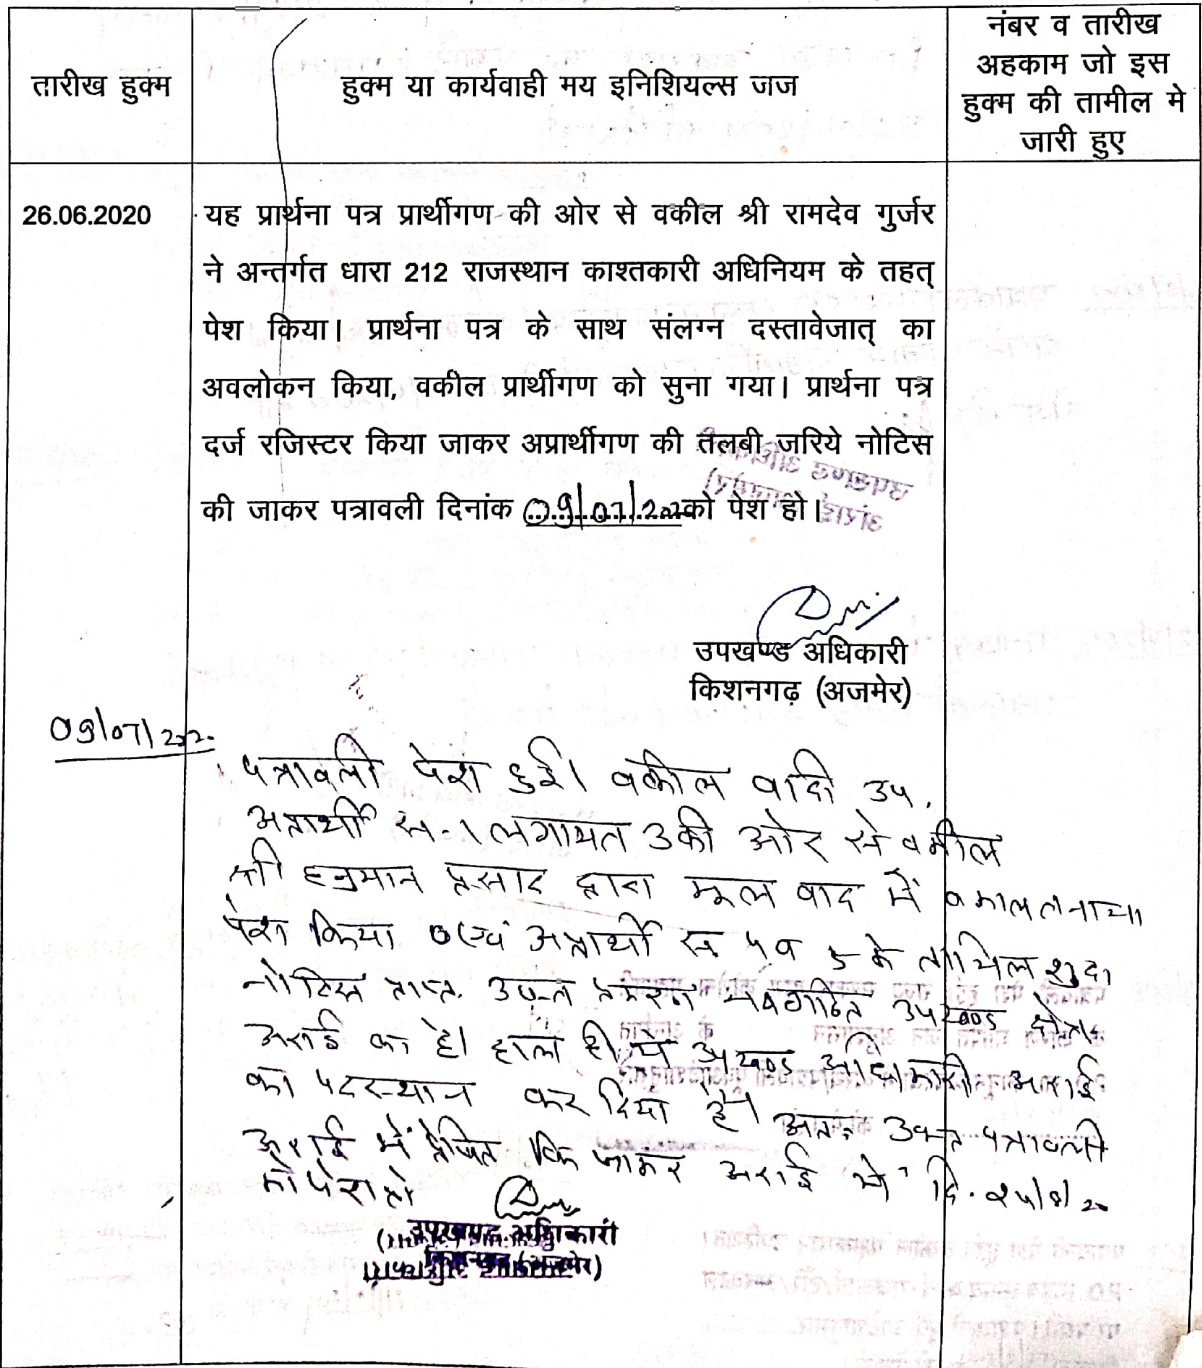 तारीख हुक्म
हुक्म या कार्यवाही मय इनिशियल्स जज
नंबर व तारीख
अहकाम जो इस
हुक्म की तामील मे
जारी हुए
26.06.2020
यह प्रार्थना पत्र प्रार्थीगण की ओर से वकील श्री रामदेव गुर्जर
ने अन्तर्गत धारा 212 राजस्थान काश्तकारी अधिनियम के तहत्
पेश किया। प्रार्थना पत्र के साथ संलग्न दस्तावेजात् का
अवलोकन किया, वकील प्रार्थीगण को सुना गया। प्रार्थना पत्र
दर्ज रजिस्टर किया जाकर अप्रार्थीगण की तलबी जरिये नोटिस
की जाकर पत्रावली दिनांक 09/07/2020 को पेश हो।
उपखण्ड अधिकारी
किशनगढ़ (अजमेर)
09/07/2020
पत्रावली पेश हुई। वकील वादी उप.
अप्रार्थी सं.-1 लगायत 3 की ओर से वकील
श्री हनुमान प्रसाद द्वारा मूल वाद में वकालतनामा
पेश किया एवं अप्रार्थी सं 4 व 5 के तामिल शुदा
नोटिस प्राप्त. उक्त प्रकरण नवगठित उपखण्ड क्षेत्र
अराई का है। हाल ही में उपखण्ड अधिकारी अराई
का पदस्थान कर दिया है। अतः उक्त पत्रावली
अराई में प्रेषित कि जाकर अराई में दि.
को पेश हो
उपखण्ड अधिकारी
किशनगढ़ (अजमेर)